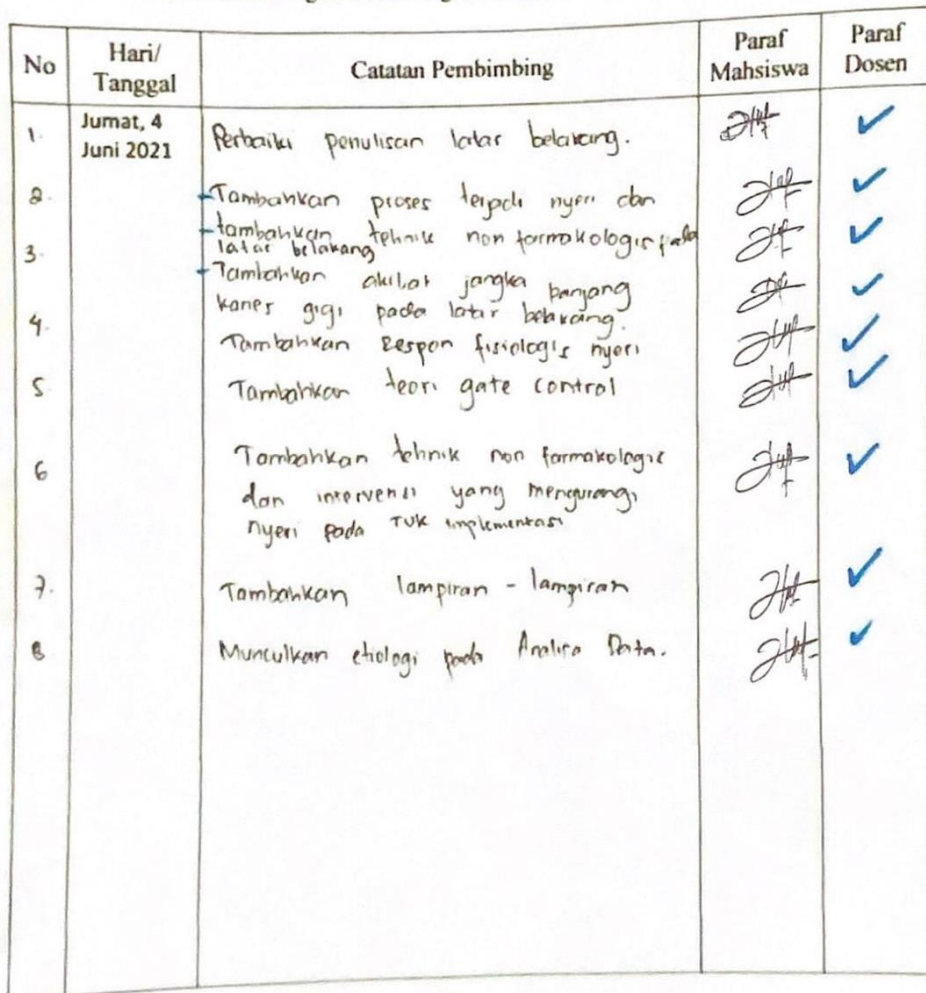 No Hari/ Tanggal Catatan Pembimbing Paraf Mahsiswa Paraf Dosen
1. Jumat, 4 Juni 2021 Perbaiki penulisan latar belakang.
2. - Tambahkan proses terjadi nyeri dan
- tambahkan tehnik non farmakologis pada
3. latar belakang
- Tambahkan akibat jangka panjang
karies gigi pada latar belakang.
4. Tambahkan Respon fisiologis nyeri
5 Tambahkan teori gate control
6 Tambahkan tehnik non farmakologis
dan intervensi yang mengurangi
nyeri pada TUK implementasi
7. Tambahkan lampiran - lampiran
8. Munculkan etiologi pada Analisa Data.